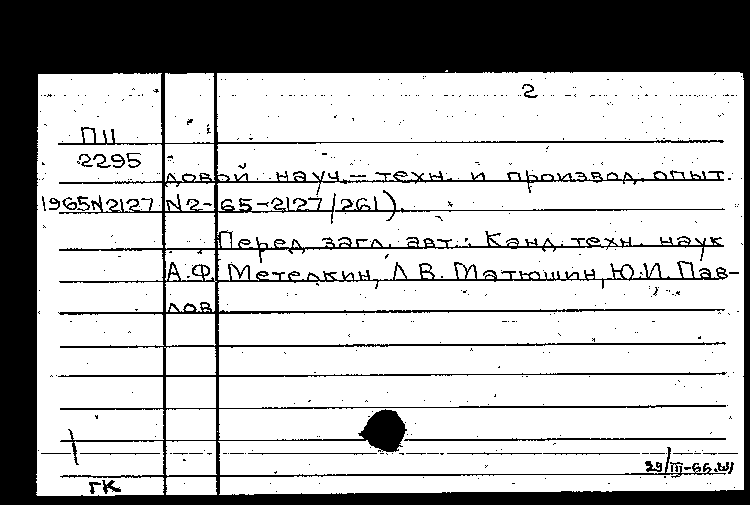 2
П11
2295
довой науч.-техн. и производ. опыт.
1965N2127 N2-65-2127/261).
Перед загл. авт.: Канд. техн. наук
А.Ф. Метелкин, Л.В. Матюшин, Ю.И. Пав-
лов
29/III-66
ГК